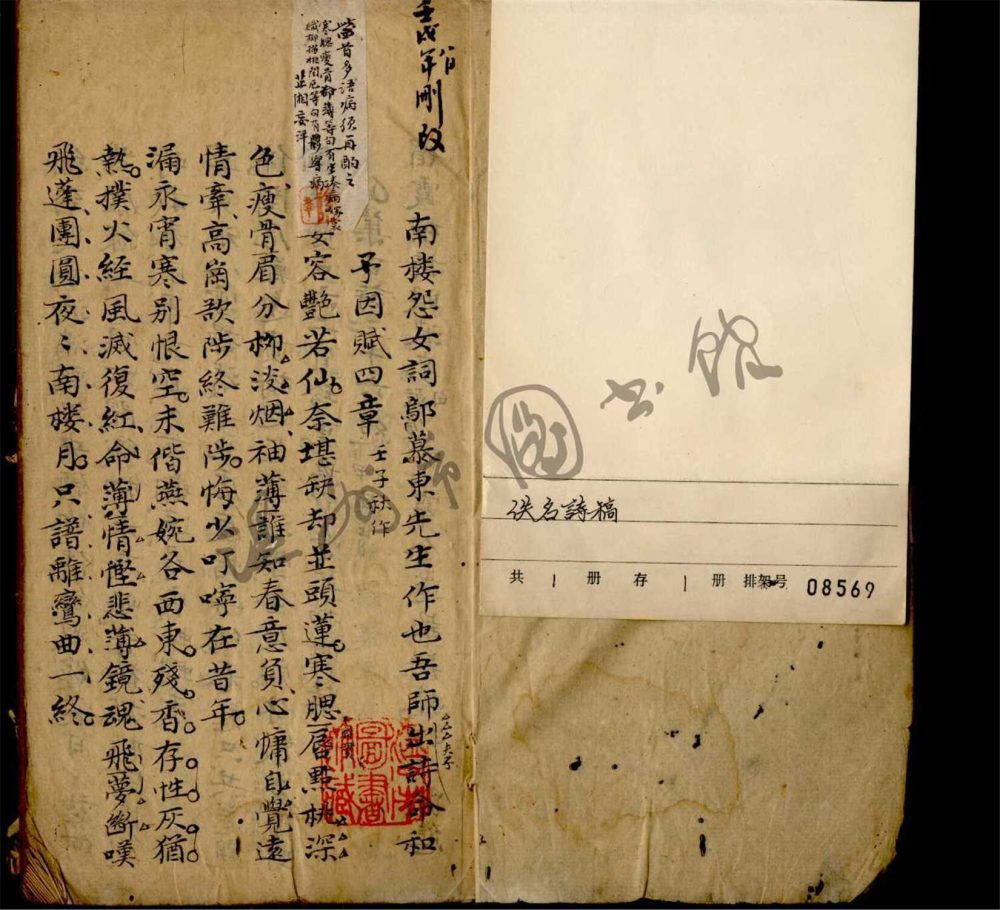 佚名詩稿
共1册存1册排架号 08569
壬戌年刪改
當首多語病須再酌之
南楼怨女詞鄔慕東先生作也吾師出詩命和
予因賦四章 壬子秋作
女容艷若仙奈堪缺却並頭蓮寒腮唇點桃深
色瘦骨眉分柳淡烟袖薄誰知春意負心慵自覺遠
情牽高崗欲陟終難陟悔少叮嚀在昔年
漏永宵寒别恨空未偕燕婉各西東殘香存性灰猶
熱撲火経風滅復紅命薄情慳悲薄鏡魂飛夢斷嘆
飛蓬團圓夜〻南楼月只譜離鸞曲一終
温州市图书馆